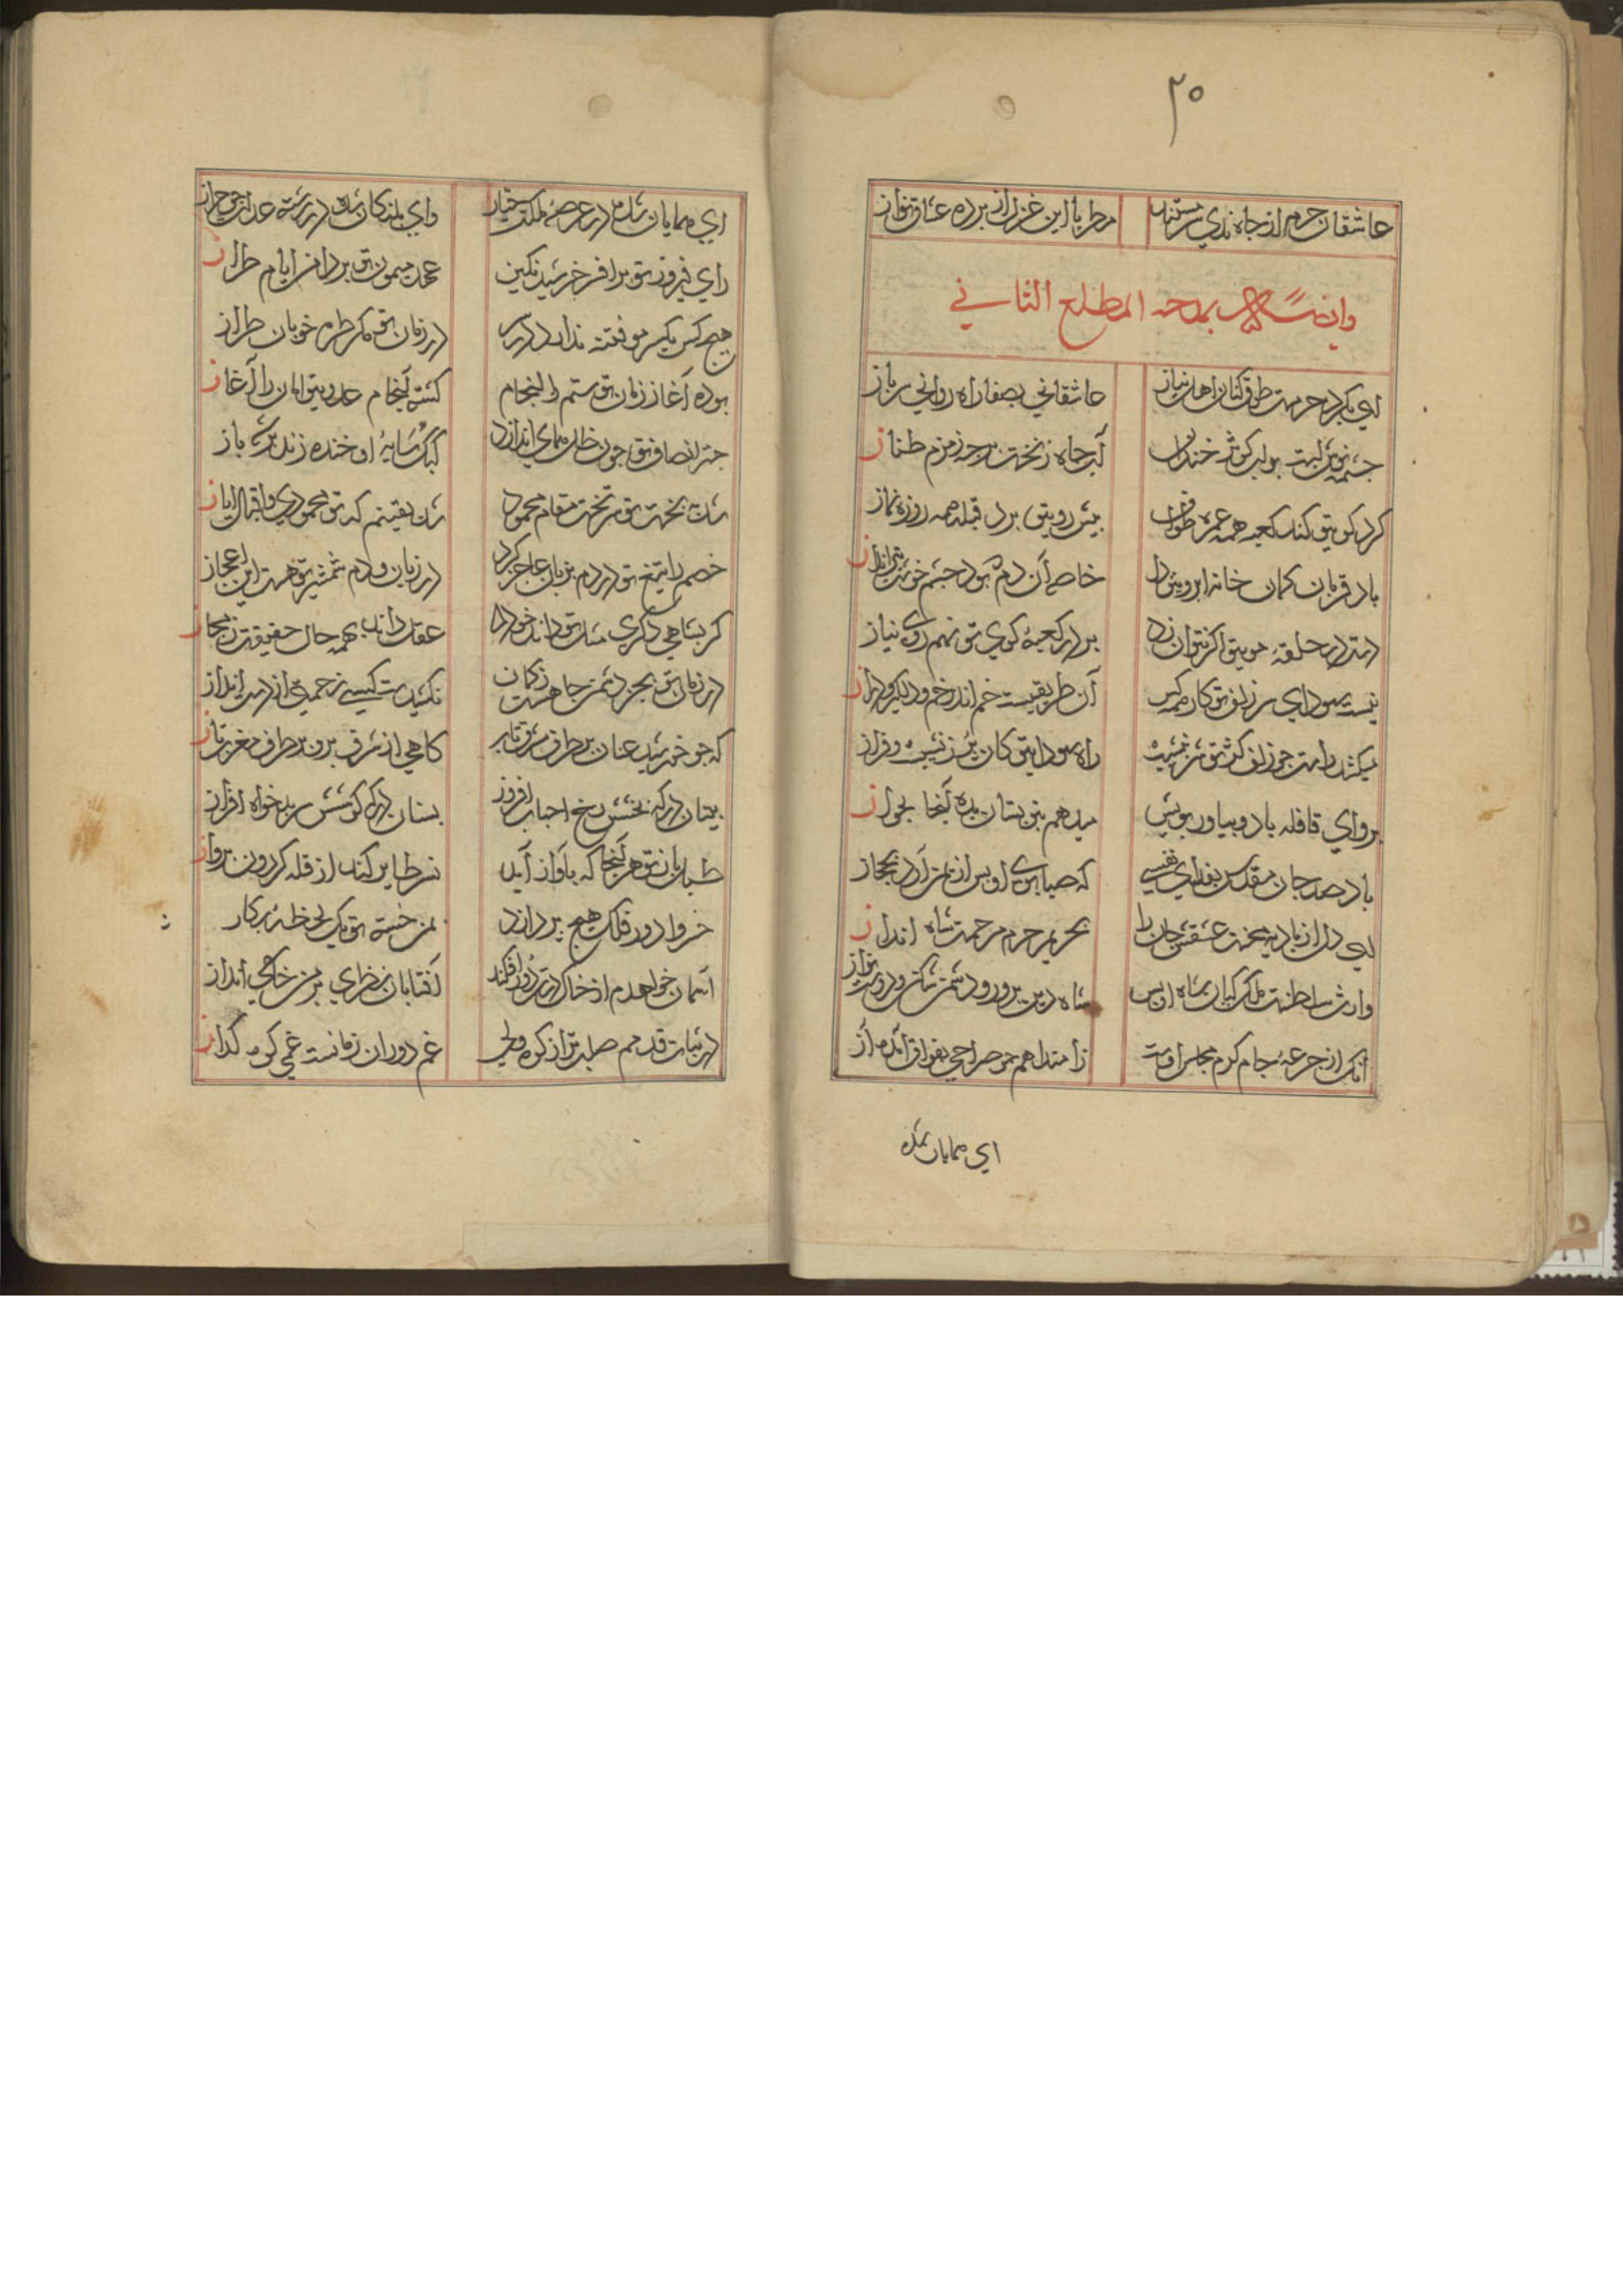 ۳۰
عاشقان حرم از جاه ندی مستند مطربا این غزل از پرده عشاق نواز
وانشا بمدحه المطلع الثاني
ای بگرد حرمت طوف کنان اهل نیاز عاشقانی بصفا راه روانی سرباز
چشمه نوش لبت بر لب کوثر خندان آب چاه زنخت بر چه زمزم طناز
گرد کوی تو کند کعبه همه عمره طواف پیش روی تو برد قبله همه روزه نماز
باد قربان کمان خانه ابروش دل خاصه آن دم که بود چشم خوشت تیرانداز
دست در حلقه موی تو اگر نتوان زد بر در کعبه کوی تو نهم روی نیاز
نیست سودای سر زلف تو کار همه کس آن طریقیست خم اندر خم و دلگیر و دراز
میکشد راست چو زلف کژ تو سر بنشیب راه سودای تو کان پر ز نشیبست و فراز
برو ای قافله باد و بیاور بویش میدهم جان بستان بده آنجا بجواز
باد صد جان مقدس بفدای نفسی که صبا بوی اویس از یمن آرد بحجاز
ای دل از بادیه سخت عشقش جان را بحریم حرم مرحمت شاه انداز
وارث سلطنت ملک کیان شاه اویس شاه دین پرور و دشمن شکن و دوست نواز
آنک از جرعه جام کرم مجلس اوست ز امتلا هم چو صراحی بفواق آمده آز
ای همایان شده
ای همایان شده در عرصه ملکت وای پلنگان شده در رسته عدل
رای فیروز تو بر افسر خرشید نگین عهد میمون تو بر دامن ایام طراز
هیچ کس یکسر مو فتنه ندارد در سر در زمان تو مگر طره خوبان طراز
بوده آغاز زمان تو ستم را انجام گشته انجام عدوی تو امان را آغاز
چتر انصاف تو چون ظل همای اندازد کبک در سایه او خنده زند بر باز
شد بتخت تو سر تخت مقام محمود شد یقینم که تو محمودی و اقبال ایاز
خصم را تیغ تو در دم بزبان عاجز کرد در زبان و دم شمشیر تو هست این اعجاز
گر بشاهی دگری مثل تو داند خود را عقل داند بهمه حال حقیقت ز مجاز
در زمان تو بجز دشمن جاهت ز کمان نکشیدست کسی زحمتی از دست انداز
که چو خورشید عنان بر طرف مشرق تاب گاهی از شرق برون بر طرف مغرب تاز
بستان در گه بخشش رخ احباب افروز بسنان در گه کوشش سر بدخواه افراز
طبل باز تو هر آنجا که بآواز آید نسر طایر کند از قله گردون پرواز
خسروا دور فلک هیچ نپردازد بمن خسته تو یک لحظه بر کار
آسمان خواهدم از خاک درت دور افکند آفتابا نظری بر من خاکی انداز
در ثبات قدمم صلب‌تر از کوه ولی غم دوران زمانست غمی کوه گداز